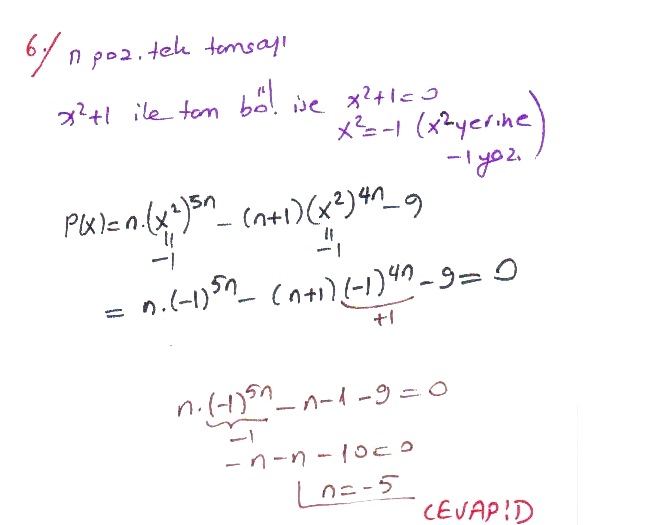 6./ n poz. tek tamsayı
x²+1 ile tam böl. ise x²+1=0
x²=-1 (x² yerine
-1 yaz.)
P(x)=n.(x²)⁵ⁿ - (n+1)(x²)⁴ⁿ - 9
= -1 = -1
= n.(-1)⁵ⁿ - (n+1)(-1)⁴ⁿ - 9 = 0
+1
n.(-1)⁵ⁿ - n-1-9=0
-1
-n-n-10=0
n=-5
CEVAP:D